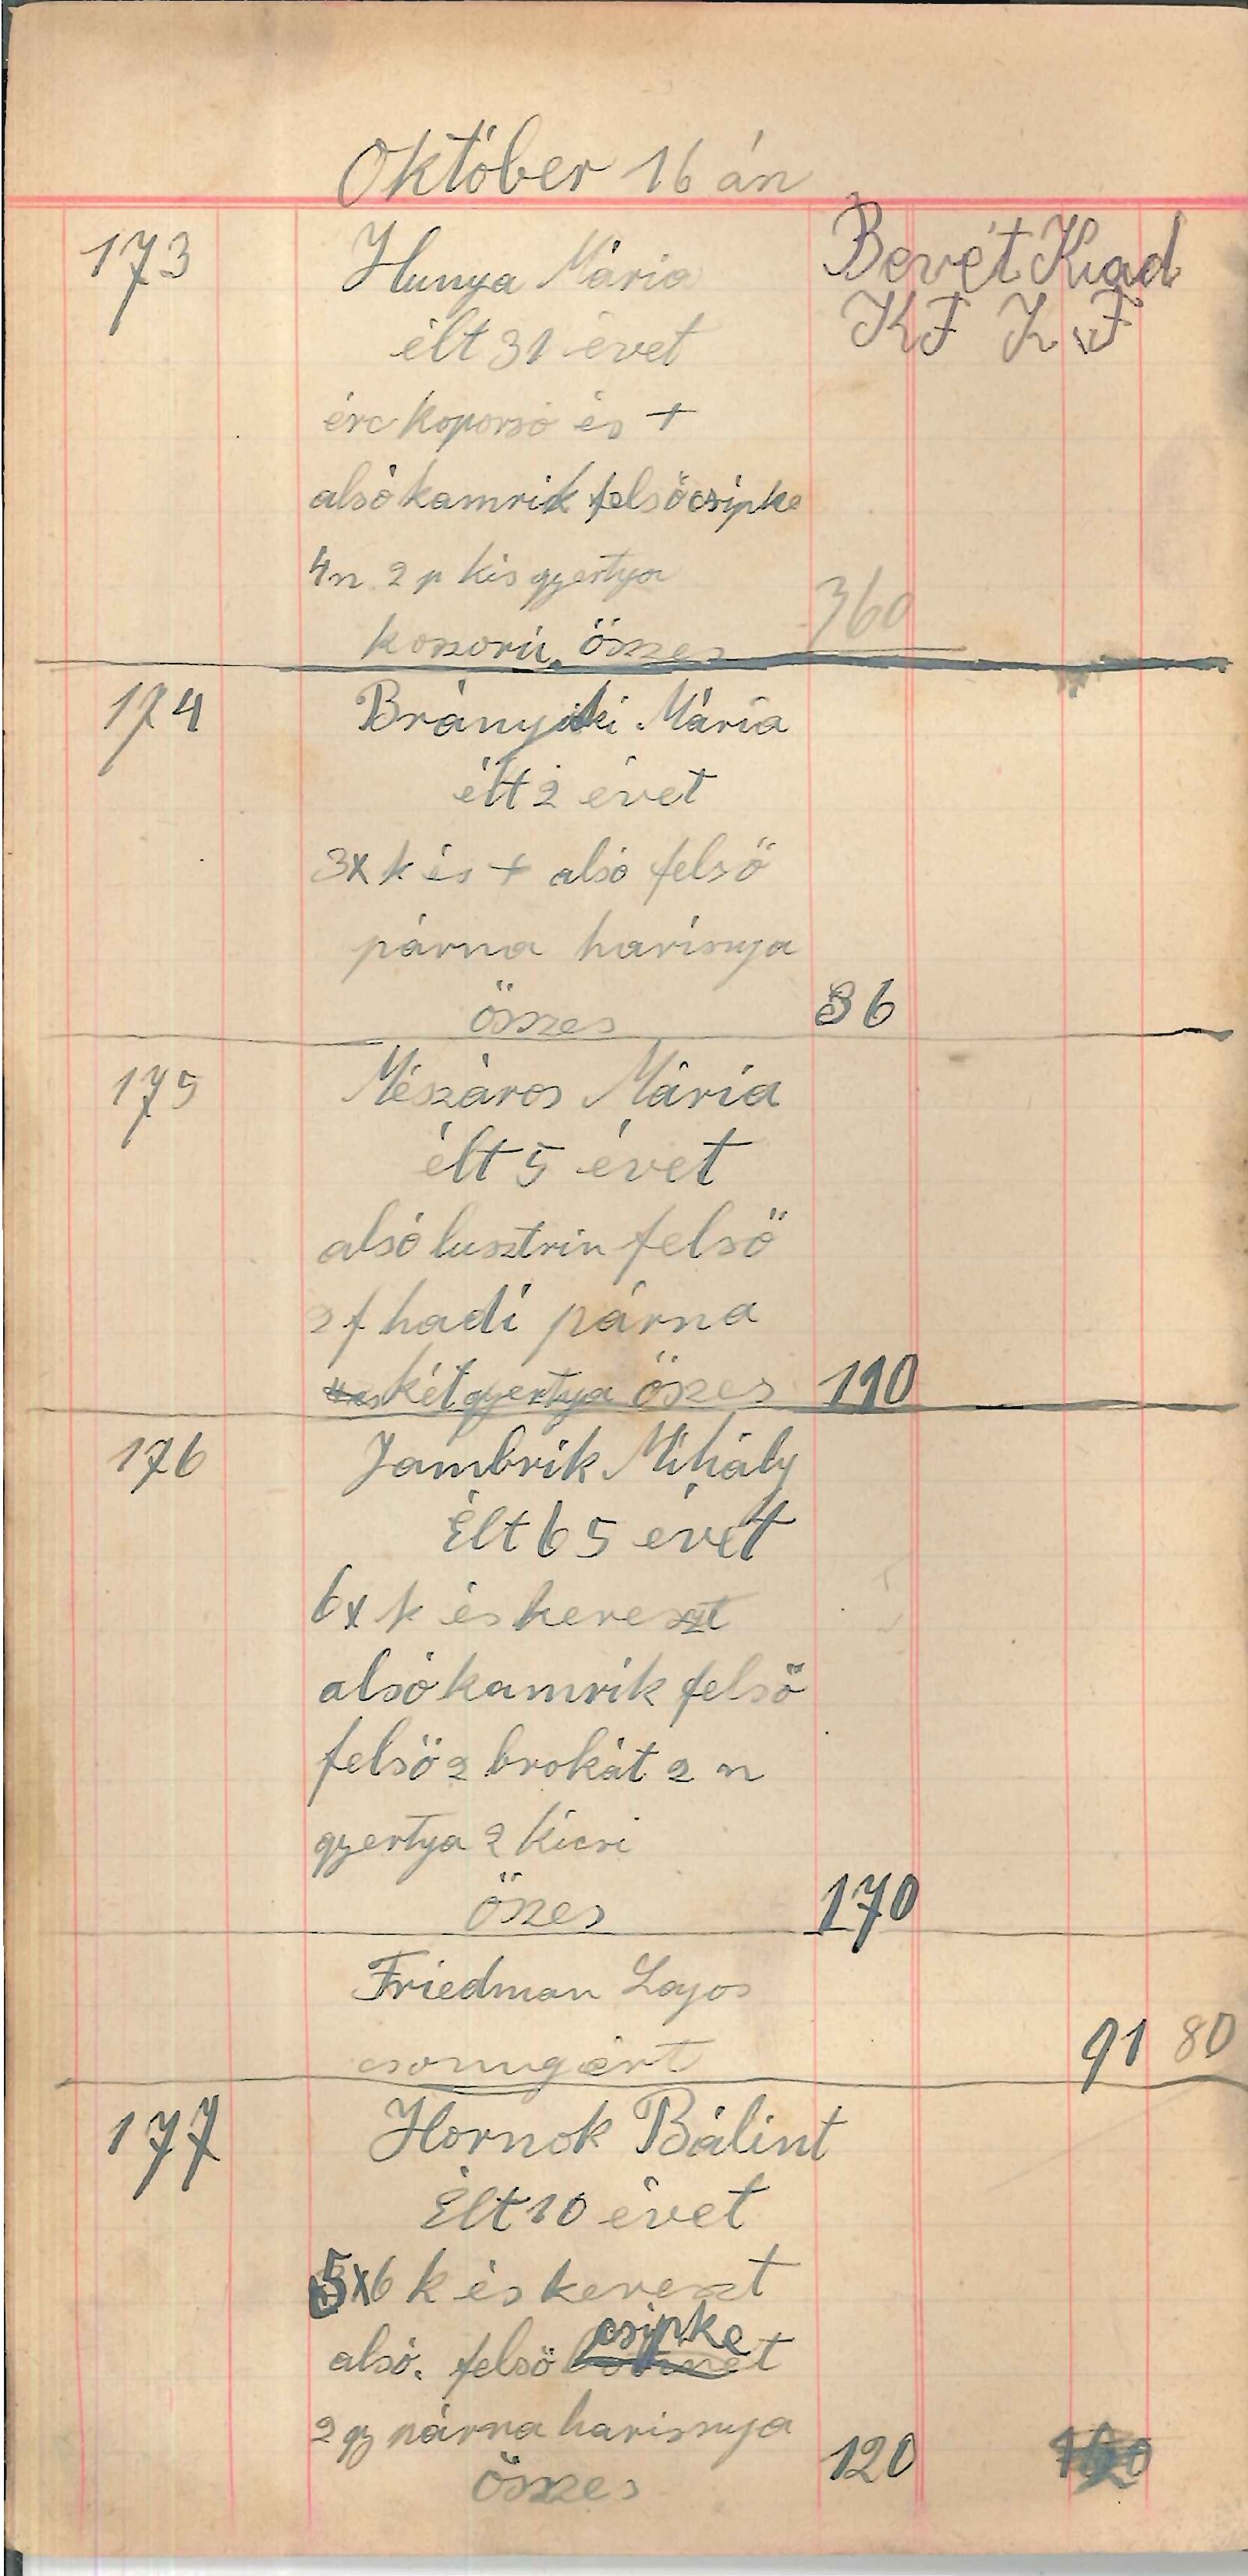 Október 16 án
173 Hunya Mária Bevét Kiad
élt 31 évet K F K F
érc koporsó és +
alsó kamrik felsőcsipke
4n 2 p kis gyertya
koszorú, összes 360
174 Brányiki Mária
élt 2 évet
3x k és + alsó felső
párna harisnya
összes 86
175 Mészáros Mária
élt 5 évet
alsó lusztrin felső
2 f hadi párna
két gyertya öszes 110
176 Jambrik Mihály
Élt 65 évet
6x k és kereszt
alsó kamrik felső
felső 2 brokát 2 n
gyertya 2 kicsi
öszes 170
Friedman Lajos
91 80
177 Hornok Bálint
Élt 10 évet
5x6 k és kereszt
csipke
alsó. felső
2 gy párna harisnya
összes 120